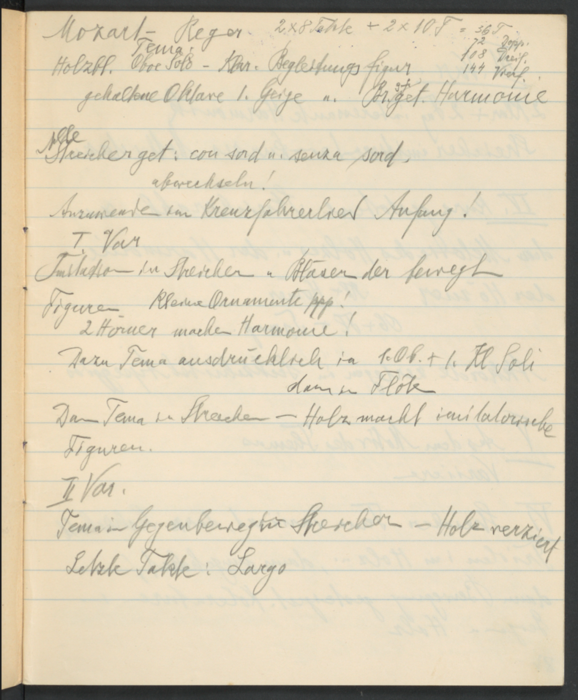 Mozart - Reger. 2 x 8 Takte + 2 x 10 T = 36 T
72 Dopp.
108 Dreif.
144 Vierf.
Tema:
Holzbl. Oboe Solo - Klar. Begleitungsfigur
gehaltene Oktave 1. Geige u. get. Harmonie
Alle
Streicher get: con sord u. senza sord.
abwechseln!
Anzuwenden im Kreuzfahrerlied Anfang!
I. Var
Imitation in Streicher u Bläser der bewegt
Figuren Kleine Ornamente pp!
2 Hörner machen Harmonie!
Dazu Tema ausdrücklich in 1. Ob. + 1. Kl Soli
dann in Flöte
Dann Tema in Streicher - Holz macht imitatorische
Figuren.
II Var.
Tema in Gegenbeweg in Streicher - Holz verziert
Letzte Takte: Largo